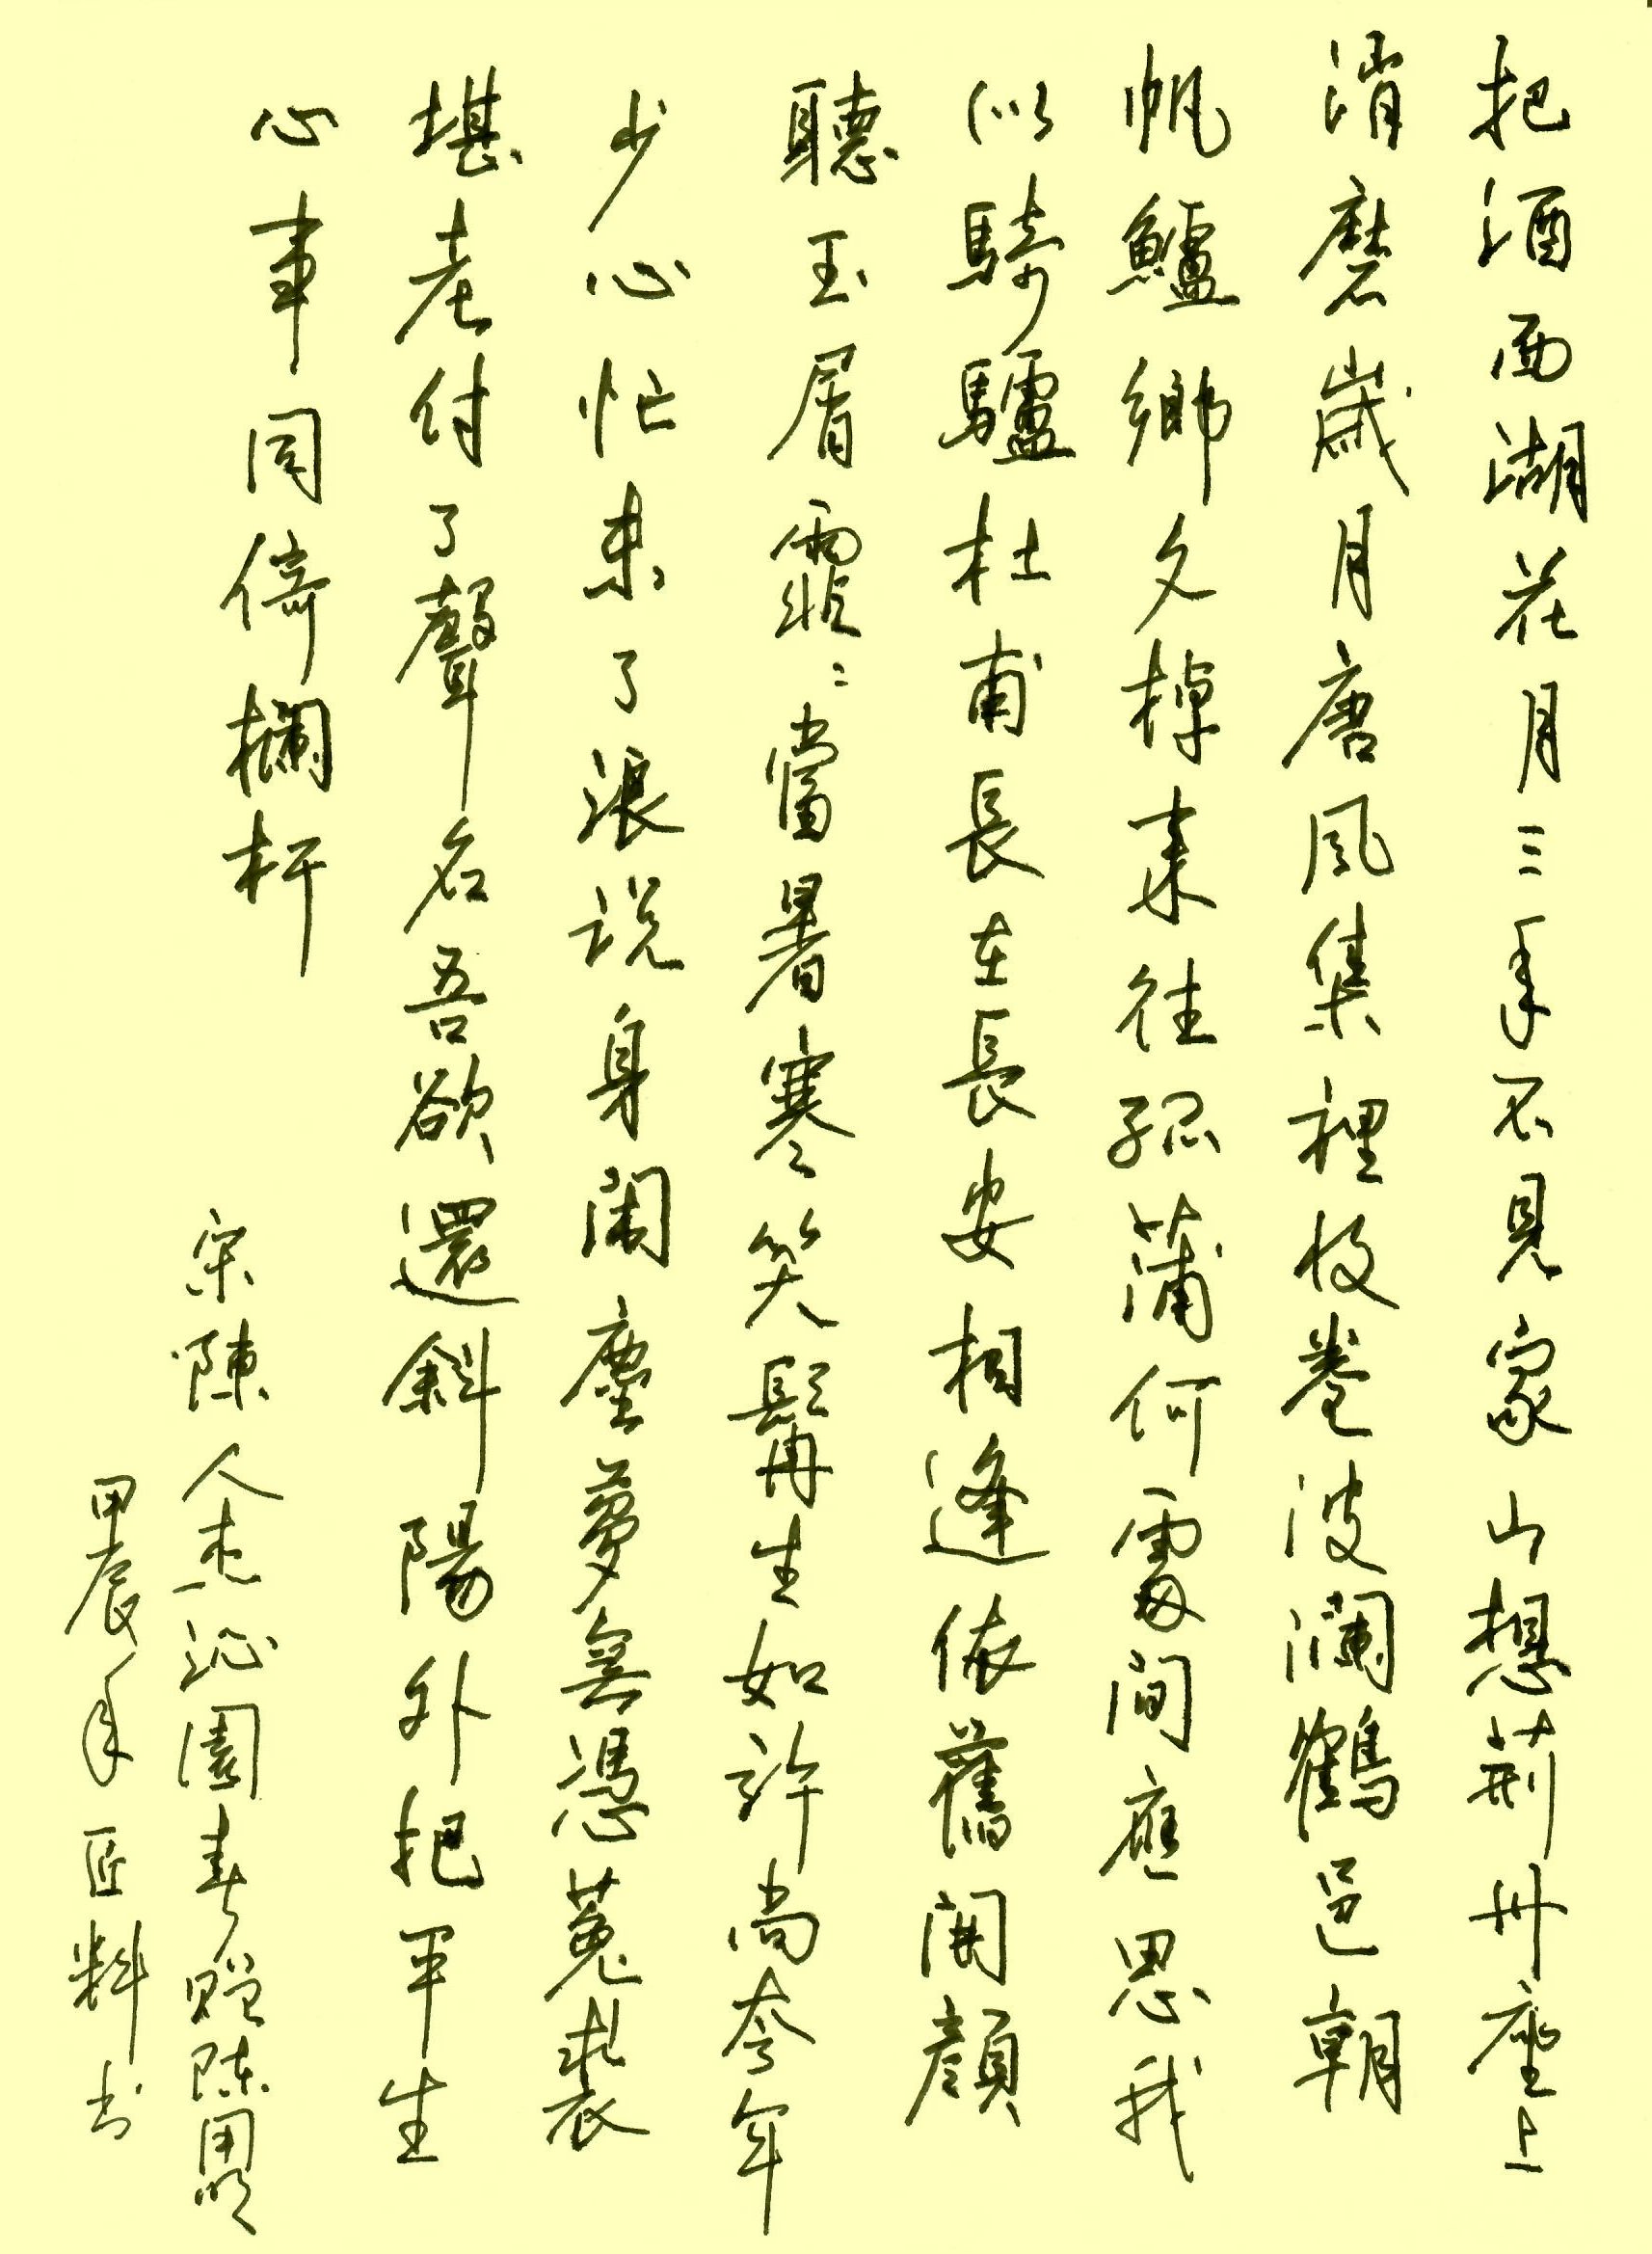 把酒西湖花月三年不見家山想荊州座上
消磨歲月唐風集裡收卷波瀾鶴邑朝
帆鱸鄉夕棹來往孤蒲何處間應思我
似騎驢杜甫長在長安相逢依舊開顏
聽玉屑霏〻當暑寒笑鬅生如許尚夸年
少心忙未了浪說身閑塵夢無憑菟裘
堪老付了聲名吾欲還斜陽外把平生
心事同倚欄杆
宋陳人杰沁園春贈陳用明
甲辰年匠料书